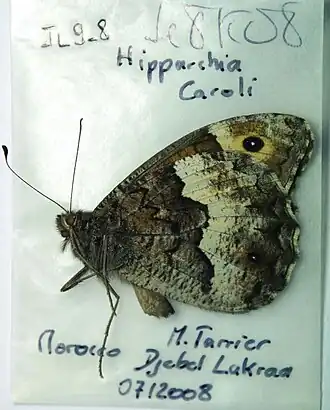 JL9-8
Hipparchia
Caroli
Morocco
M. Tarrier
Djebel Lakraa
07/2008